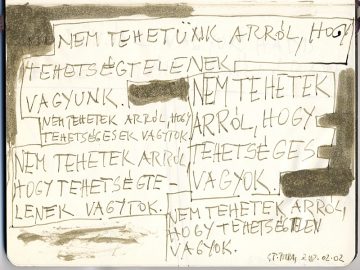 NEM TEHETÜNK ARRÓL, HOGY
TEHETSÉGTELENEK
VAGYUNK.
NEM TEHETEK ARRÓL, HOGY
TEHETSÉGESEK VAGYTOK.
NEM TEHETEK ARRÓL,
HOGY TEHETSÉGTE-
LENEK VAGYTOK.
NEM TEHETEK
ARRÓL, HOGY
TEHETSÉGES
VAGYOK.
NEM TEHETEK ARRÓL,
HOGY TEHETSÉGTELEN
VAGYOK.